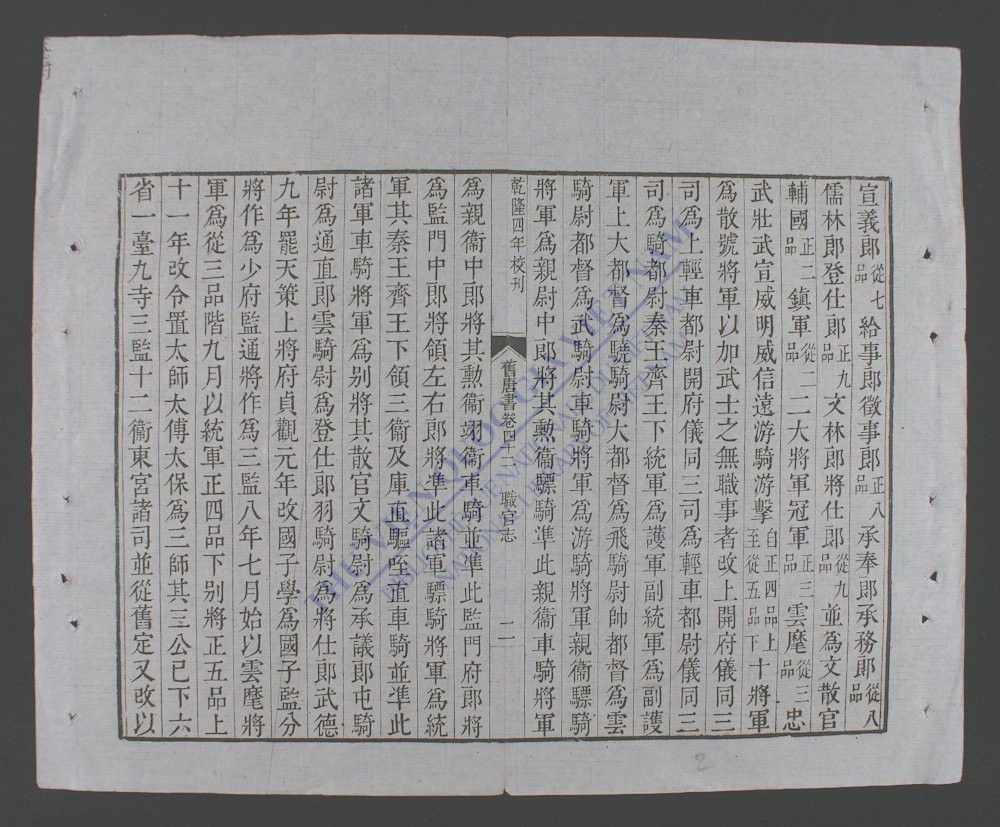 宣義郎從七品給事郎徵事郎正八品承奉郎承務郎從八品
儒林郎登仕郎正九品文林郎將仕郎從九品並爲文散官
輔國正二品鎮軍從二品二大將軍冠軍正三品雲麾從三品忠
武壯武宣威明威信遠游騎游擊自正四品上至從五品下十將軍
爲散號將軍以加武士之無職事者改上開府儀同三
司爲上輕車都尉開府儀同三司爲輕車都尉儀同三
司爲騎都尉秦王齊王下統軍爲護軍副統軍爲副護
軍上大都督爲驍騎尉大都督爲飛騎尉帥都督爲雲
騎尉都督爲武騎尉車騎將軍爲游騎將軍親衞驃騎
將軍爲親尉中郎將其勲衞驃騎準此親衞車騎將軍
乾隆四年校刊
舊唐書卷四十二 職官志
二
爲親衞中郎將其勲衞翊衞車騎並準此監門府郎將
爲監門中郎將領左右郎將準此諸軍驃騎將軍爲統
軍其秦王齊王下領三衞及庫直驅咥直車騎並準此
諸軍車騎將軍爲別將其散官文騎尉爲承議郎屯騎
尉爲通直郎雲騎尉爲登仕郎羽騎尉爲將仕郎武德
九年罷天策上將府貞觀元年改國子學爲國子監分
將作爲少府監通將作爲三監八年七月始以雲麾將
軍爲從三品階九月以統軍正四品下別將正五品上
十一年改令置太師太傅太保爲三師其三公已下六
省一臺九寺三監十二衞東宮諸司並從舊定又改以
THƯ VIỆN QUỐC GIA VIỆT NAM
2